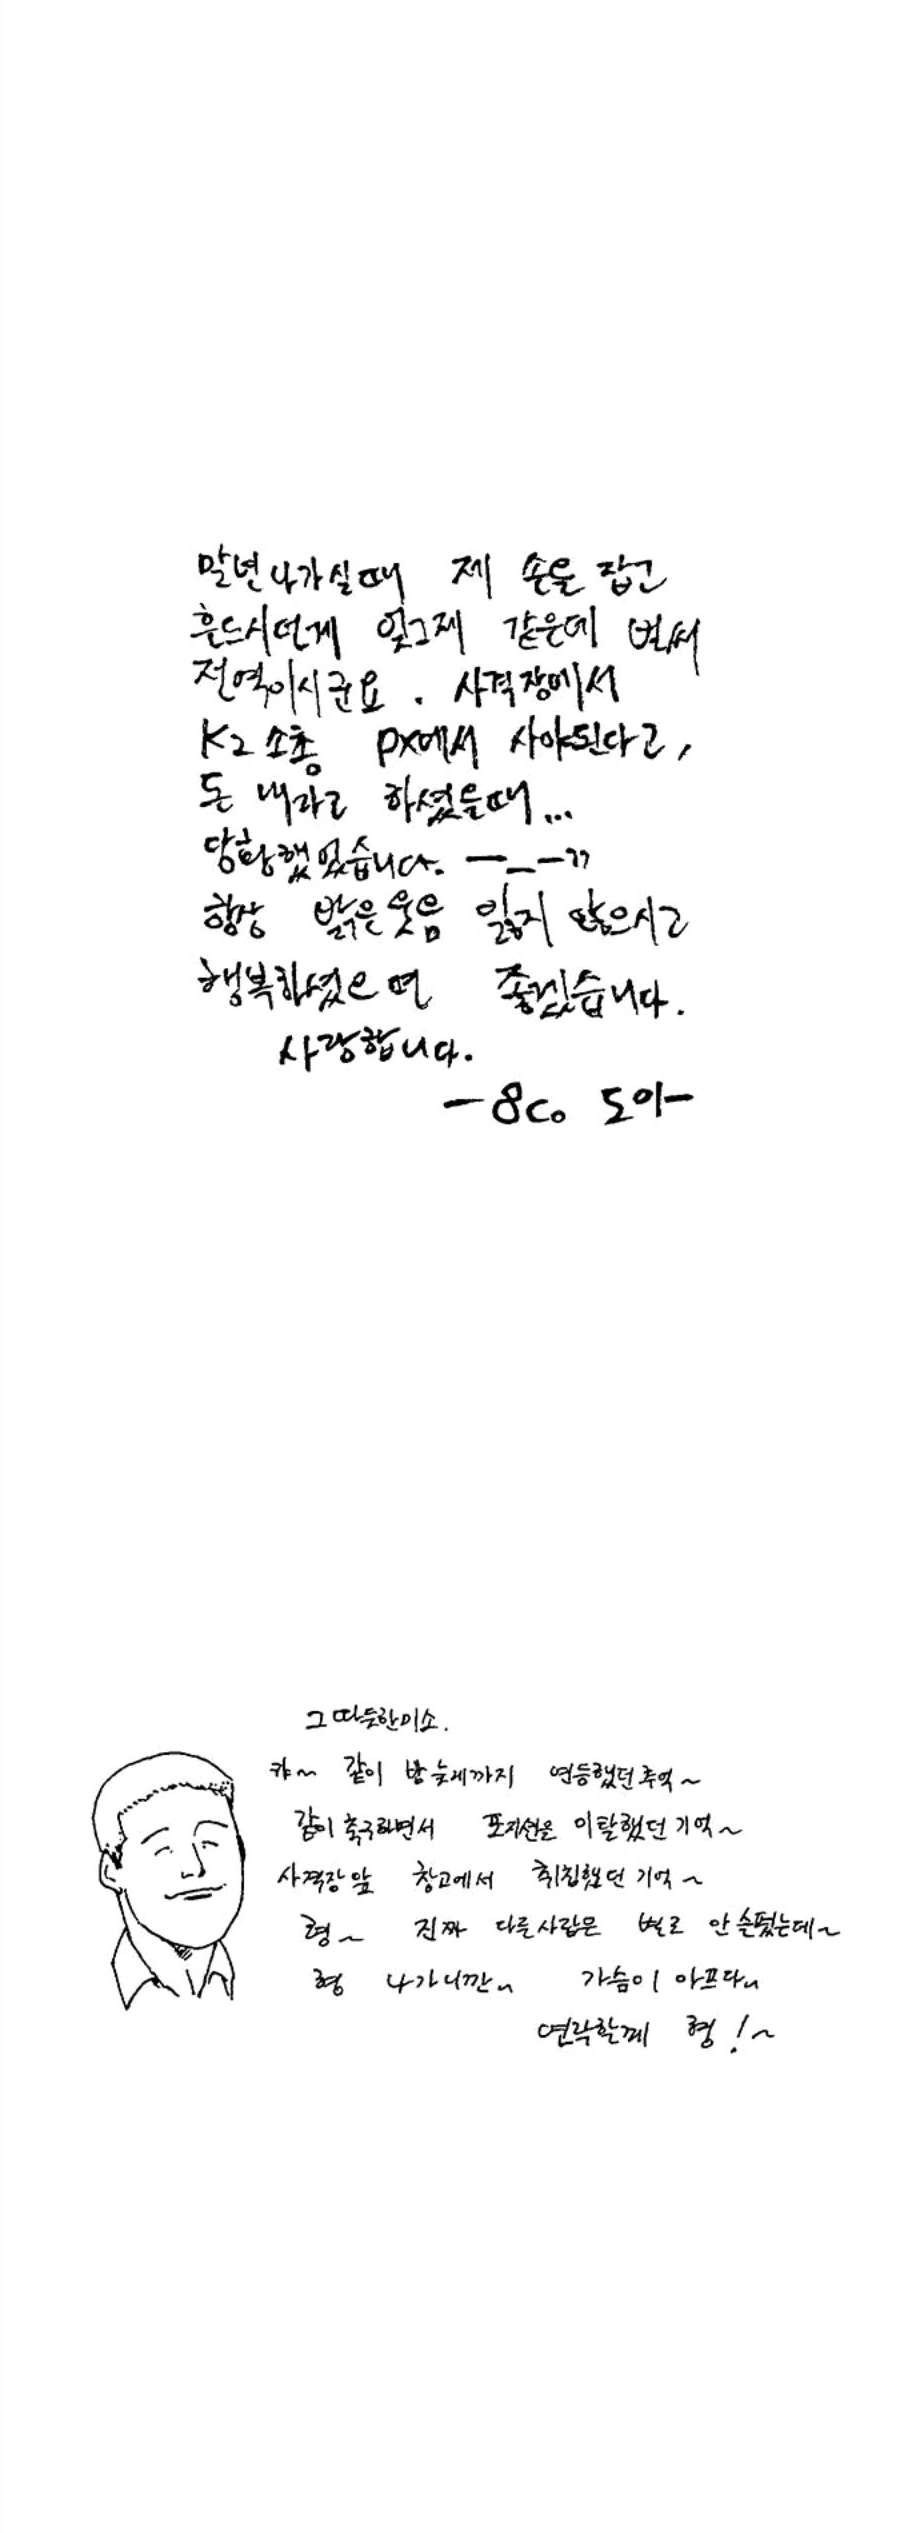 말년 나가실때 제 손을 잡고
흔드시던게 엊그제 같은데 벌써
전역이시군요. 사격장에서
K2 소총 PX에서 사야된다고,
돈 내라고 하셨을때...
당황했었습니다. ㅡ_ㅡ;;
항상 밝은 웃음 잃지 않으시고
행복하셨으면 좋겠습니다.
사랑합니다.
-8co 도이-
그 따듯한 미소.
캬~ 같이 밤 늦게까지 연등했던 추억~
같이 축구하면서 포지션을 이탈했던 기억~
사격장 앞 창고에서 취침했던 기억~
형~ 진짜 다른 사람은 별로 안 슬펐는데~
형 나가니깐 가슴이 아프다
연락할께 형!~